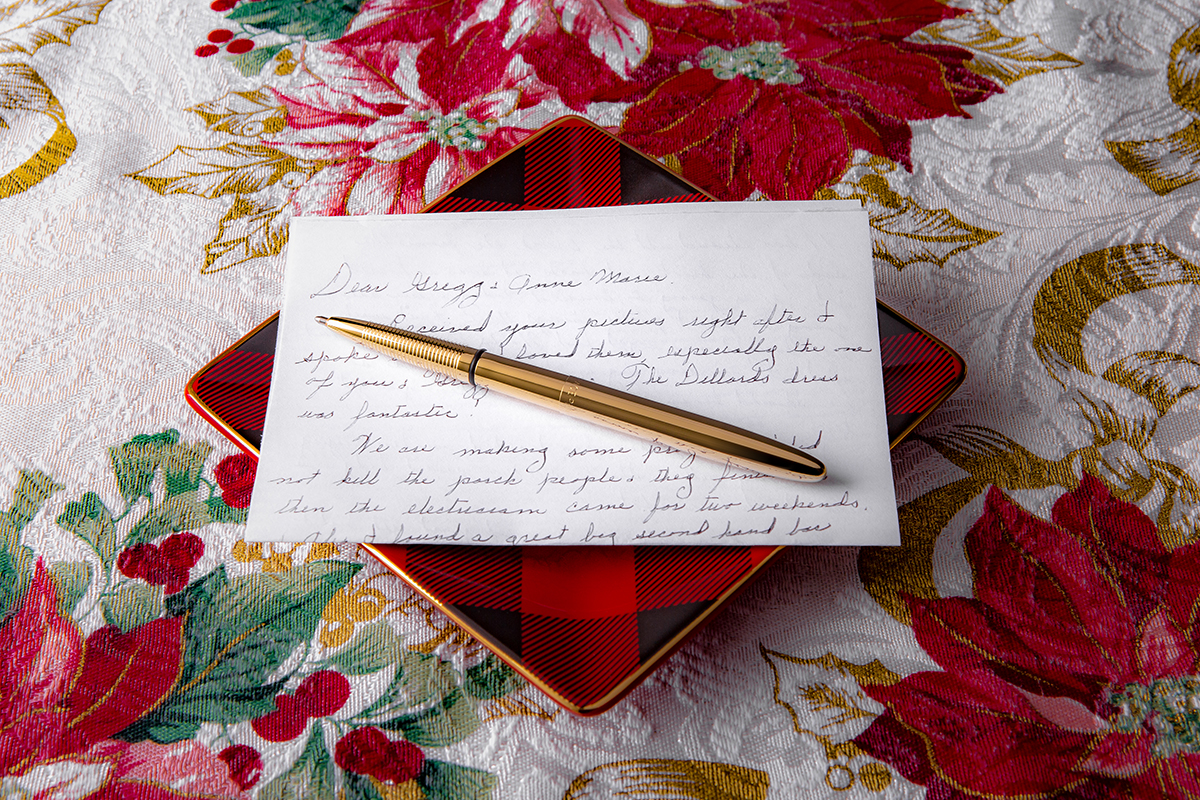 Dear Gregg & Anne Marie.
Received your pictures right after I
spoke loved them, especially the one
of you & Gregg The Dillards dress
was fantastic!
We are making some
not kill the porch people & they
then the electrician came for two weekends.
I found a great big second hand